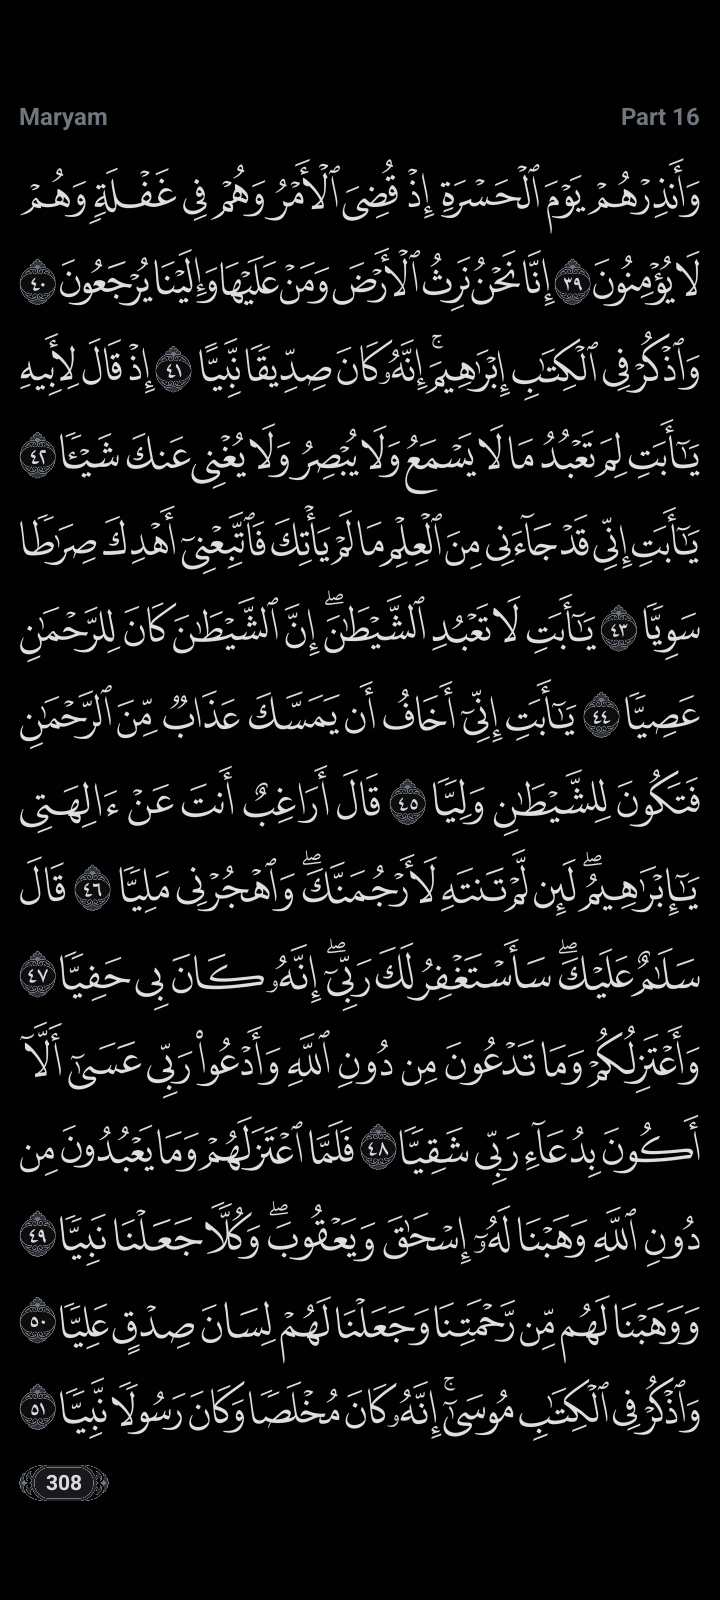 Maryam Part 16
وَأَنذِرْهُمْ يَوْمَ ٱلْحَسْرَةِ إِذْ قُضِىَ ٱلْأَمْرُ وَهُمْ فِى غَفْلَةٍ وَهُمْ
لَا يُؤْمِنُونَ ٣٩ إِنَّا نَحْنُ نَرِثُ ٱلْأَرْضَ وَمَنْ عَلَيْهَا وَإِلَيْنَا يُرْجَعُونَ ٤٠
وَٱذْكُرْ فِى ٱلْكِتَـٰبِ إِبْرَٰهِيمَ ۚ إِنَّهُۥ كَانَ صِدِّيقًا نَّبِيًّا ٤١ إِذْ قَالَ لِأَبِيهِ
يَـٰٓأَبَتِ لِمَ تَعْبُدُ مَا لَا يَسْمَعُ وَلَا يُبْصِرُ وَلَا يُغْنِى عَنكَ شَيْـًٔا ٤٢
يَـٰٓأَبَتِ إِنِّى قَدْ جَآءَنِى مِنَ ٱلْعِلْمِ مَا لَمْ يَأْتِكَ فَٱتَّبِعْنِىٓ أَهْدِكَ صِرَٰطًا
سَوِيًّا ٤٣ يَـٰٓأَبَتِ لَا تَعْبُدِ ٱلشَّيْطَـٰنَ ۖ إِنَّ ٱلشَّيْطَـٰنَ كَانَ لِلرَّحْمَـٰنِ
عَصِيًّا ٤٤ يَـٰٓأَبَتِ إِنِّىٓ أَخَافُ أَن يَمَسَّكَ عَذَابٌ مِّنَ ٱلرَّحْمَـٰنِ
فَتَكُونَ لِلشَّيْطَـٰنِ وَلِيًّا ٤٥ قَالَ أَرَاغِبٌ أَنتَ عَنْ ءَالِهَتِى
يَـٰٓإِبْرَٰهِيمُ ۖ لَئِن لَّمْ تَنتَهِ لَأَرْجُمَنَّكَ ۖ وَٱهْجُرْنِى مَلِيًّا ٤٦ قَالَ
سَلَـٰمٌ عَلَيْكَ ۖ سَأَسْتَغْفِرُ لَكَ رَبِّىٓ ۖ إِنَّهُۥ كَانَ بِى حَفِيًّا ٤٧
وَأَعْتَزِلُكُمْ وَمَا تَدْعُونَ مِن دُونِ ٱللَّهِ وَأَدْعُوا۟ رَبِّى عَسَىٰٓ أَلَّآ
أَكُونَ بِدُعَآءِ رَبِّى شَقِيًّا ٤٨ فَلَمَّا ٱعْتَزَلَهُمْ وَمَا يَعْبُدُونَ مِن
دُونِ ٱللَّهِ وَهَبْنَا لَهُۥٓ إِسْحَـٰقَ وَيَعْقُوبَ ۖ وَكُلًّا جَعَلْنَا نَبِيًّا ٤٩
وَوَهَبْنَا لَهُم مِّن رَّحْمَتِنَا وَجَعَلْنَا لَهُمْ لِسَانَ صِدْقٍ عَلِيًّا ٥٠
وَٱذْكُرْ فِى ٱلْكِتَـٰبِ مُوسَىٰٓ ۚ إِنَّهُۥ كَانَ مُخْلَصًا وَكَانَ رَسُولًا نَّبِيًّا ٥١
308